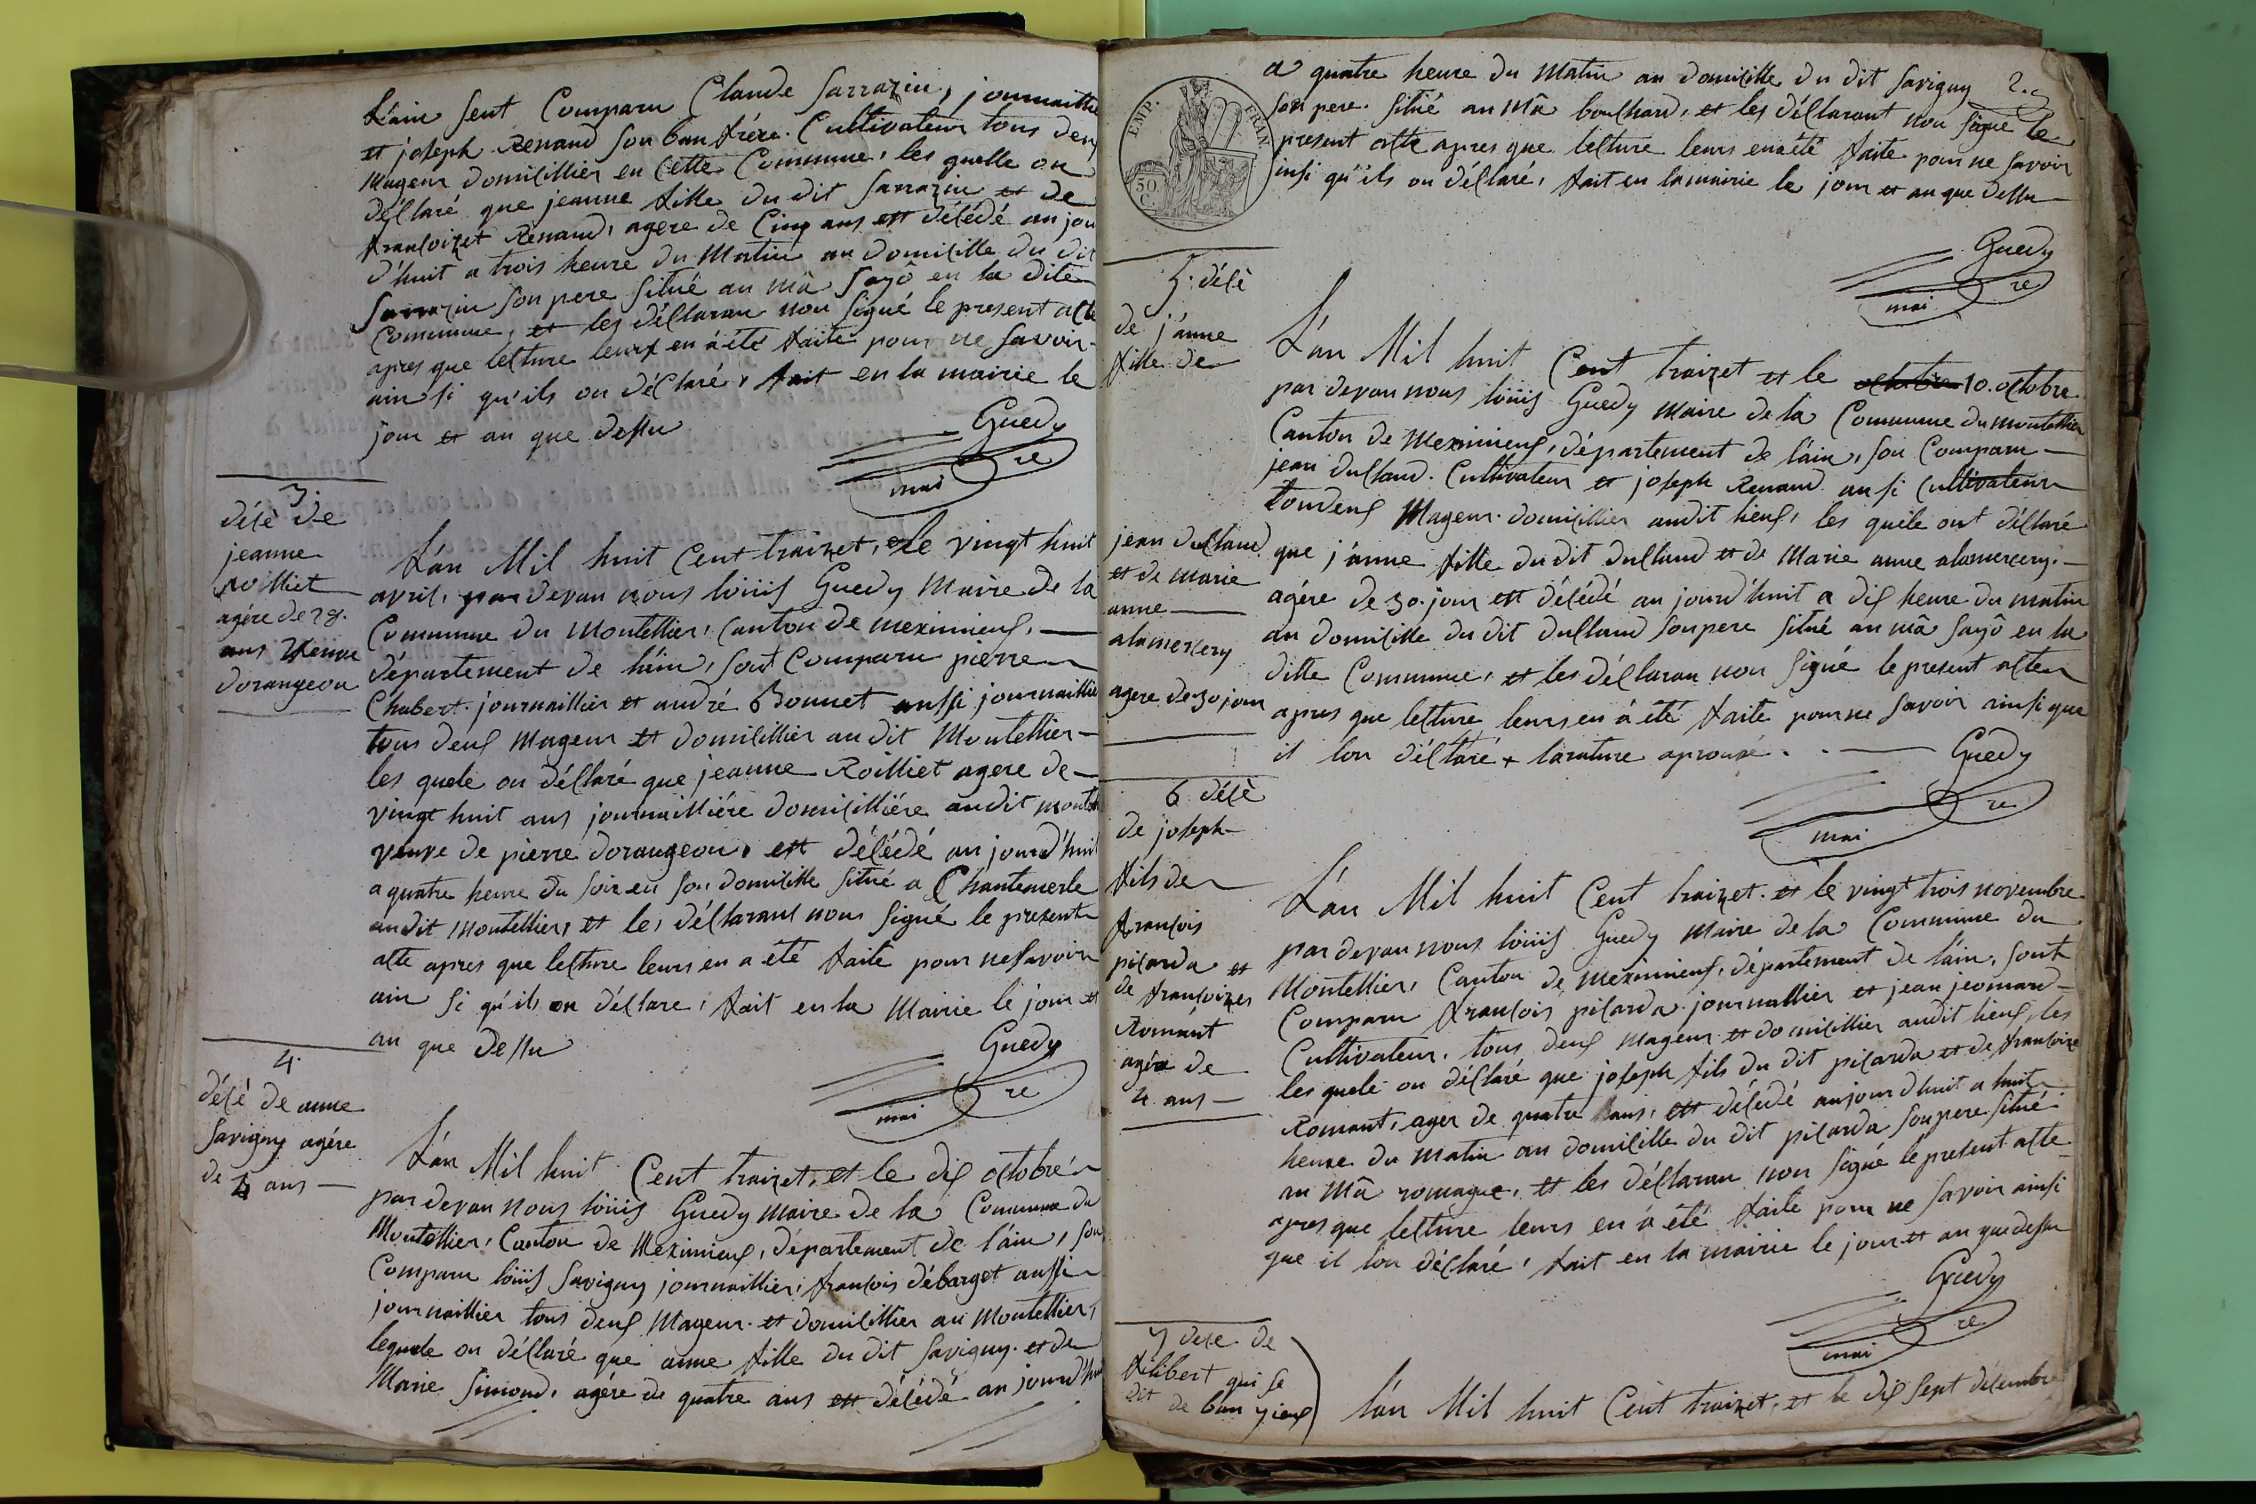 L'ain sent Comparu Claude Sarrazin, journaillie
et joseph Renaud son bau frére. Cultivateur tous deux
Mageur domicillier en Cette Commune, les quelle on
déclaré que jeanne fille du dit Sarrazin et de
françoizet Renaud, agere de Cinq ans est décédé au jou
d'huit a trois heure du Matin au domicille du dit
Sarrazin son pere situé au mâ Sayô en la dite
Commune, et les déclaran non signé le present acte
apres que lecture leurs en á été faite pour ne savoir
ain si qu'ils on déclaré, fait en la mairie le
jour et an que dessu
Guedy
mai re
3.
décè de
jeanne
roilliet
agére de 28.
ans veuve
dorangeon
L'an Mil huit Cent traizet, et le vingt huit
avril, par devan nous loüis Guedy Maire de la
Commune du Montellier, Canton de meximieux,
département de l'ain, sont Comparu pierre
Chabert journaillier et andré Bonnet aussi journaillie
tous deux Mageur et domicillier au dit Montellier
les quele on déclaré que jeanne Roilliet agere de
vingt huit ans journailliére domicilliére audit montel
veuve de pierre dorangeon, est décédé au jourd'huit
a quatre heure du soir en son domicille situé a Chantemerle
audit Montellier, et les déclarant nous signé le present
acte apres que lecture leurs en a été faite pour ne savoir
ain si qu'ils on déclare, fait en la Mairie le jour et
an que dessu
Guedy
mai re
4.
décè de anne
Savigny agére
de 4 ans
L'an Mil huit Cent traizet, et le dix octobre
par devan nous loüis Guedy maire de la Commune du
Montellier, Canton de Meximieux, département de l'ain, son
Comparu loüis Savigny journaillier, françois débarget aussi
journaillier tous deux Mageur et domicillier au Montellier,
lequele on déclaré que anne fille du dit Savigny et de
Marie Simond, agére de quatre ans est décédé au jourd'hui
2.
a quatre heure du Matin au domicille du dit Savigny
son pere situé au Mâ bouchard, et les déclarant non signé le
present acte apres que lecture leurs en a été faite pour ne savoir
insi qu'ils on déclaré, fait en la mairie le jour et an que dessu
EMP. FRAN.
50 C.
Guedy
mai re
5. décè
de j'anne
fille de
jean dulland
et de marie
anne
alamercery
agere de 30 jour
L'an Mil huit Cent traizet et le octobre 10. octobre
par devan nous loüis Guedy Maire de la Commune du montellier
Canton de Meximieux, département de l'ain, son Comparu
jean dulland. Cultivateur et joseph Renaud au si Cultivateur
tou deux Mageur domicillier audit lieux, les quele ont déclaré
que j'anne fille du dit dulland et de Marie anne alamercery.
agére de 30. jour est décédé au jourd'huit a dix heure du matin
au domicille du dit dulland son pere situé au mâ sayô en la
ditte Commune, et les déclaran non signé le present acte
apres que lecture leurs en á été faite pour ne savoir ainsi que
il lon déclaré + larature aprouvé.
Guedy
mai re
6. décè
de joseph
fils de
françois
picarda et
de françoizes
Romant
agér de
4 ans
L'an Mil huit Cent traizet. et le vingt trois novembre
par devan nous loüis Guedy Maire de la Commune du
Montellier, Canton de meximieux, département de l'ain, sont
Comparu françois picarda journallier et jean jeomard
Cultivateur, tous deux Mageur et domicillier audit lieux, les
les quele on déclaré que joseph fils du dit picarda et de françoize
Romant, ager de quatre ans, est décédé aujourdhuit a huit
heure du matin au domicille du dit picarda son pere situé
au Mâ romague, et les déclaran non signé le present acte
apres que lecture leurs en á été faite pour ne savoir ainsi
que il lon déclaré, fait en la mairie le jour et an que dessu
Guedy
mai re
7 dece de
filibert qui se
dit de ban
L'an Mil huit Cent traizet, et le dix sept décembre